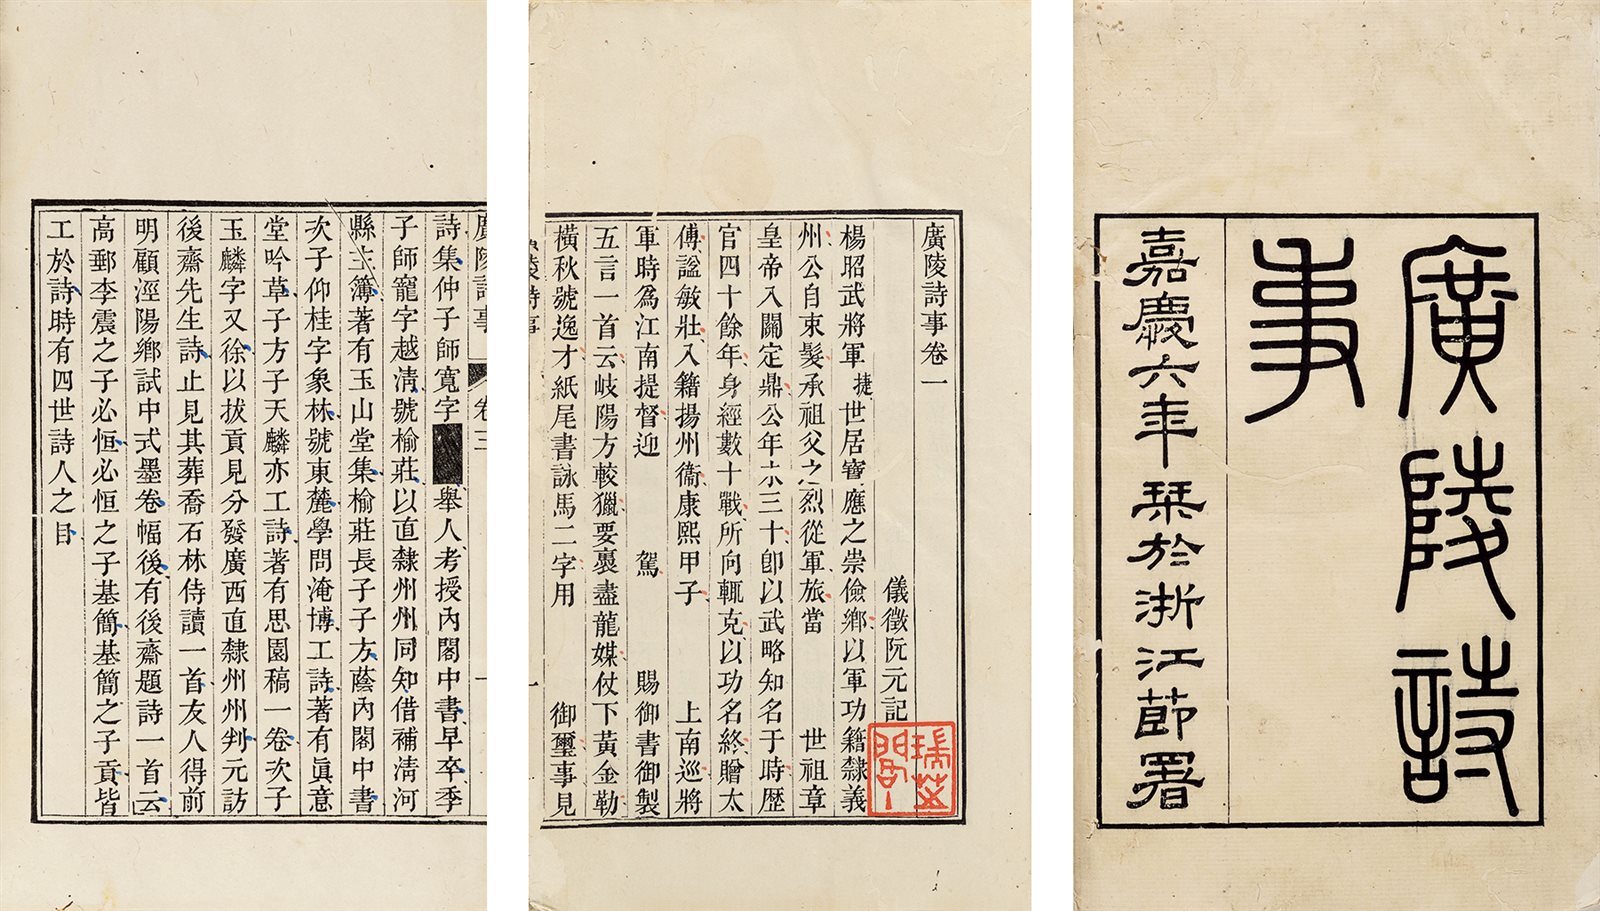 廣陵詩
事
嘉慶六年栞於浙江節署
廣陵詩事卷一
儀徵阮元記
楊昭武將軍捷世居寶應之崇儉鄉以軍功籍隸義
州公自束髮承祖父之烈從軍旅當 世祖章
皇帝入關定鼎公年未三十卽以武略知名于時歴
官四十餘年身經數十戰所向輒克以功名終贈太
傅諡敏壯入籍揚州衞康熙甲子 上南巡將
軍時爲江南提督迎 駕 賜御書御製
五言一首云岐陽方較獵要裹盡龍媒仗下黃金勒
橫秋號逸才紙尾書詠馬二字用 御璽事見
廣陵詩事 卷三 一
詩集仲子師寬字 舉人考授內閣中書早卒季
子師寵字越淸號榆莊以直隸州州同知借補淸河
縣主簿著有玉山堂集榆莊長子子方蔭內閣中書
次子仰桂字象林號東麓學問淹博工詩著有眞意
堂吟草子方子天麟亦工詩著有思園稿一卷次子
玉麟字又徐以拔貢見分發廣西直隸州州判元訪
後齋先生詩止見其葬喬石林侍讀一首友人得前
明顧涇陽鄉試中式墨卷幅後有後齋題詩一首云
高郵李震之子必恒必恒之子基簡基簡之子貢皆
工於詩時有四世詩人之目